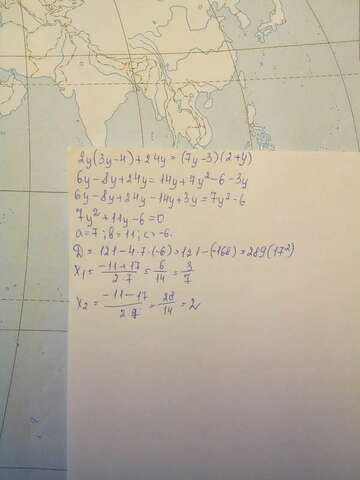 2y(3y-4)+24y=(7y-3)(2+y)
6y-8y+24y=14y+7y²-6-3y
6y-8y+24y-14y+3y=7y²-6
7y²+11y-6=0
a=7; b=11; c=-6.
D=121-4·7·(-6)=121-(-168)=289(17²)
x₁=(-11+17)/(2·7)=6/14=3/7
x₂=(-11-17)/(2·7)=28/14=2